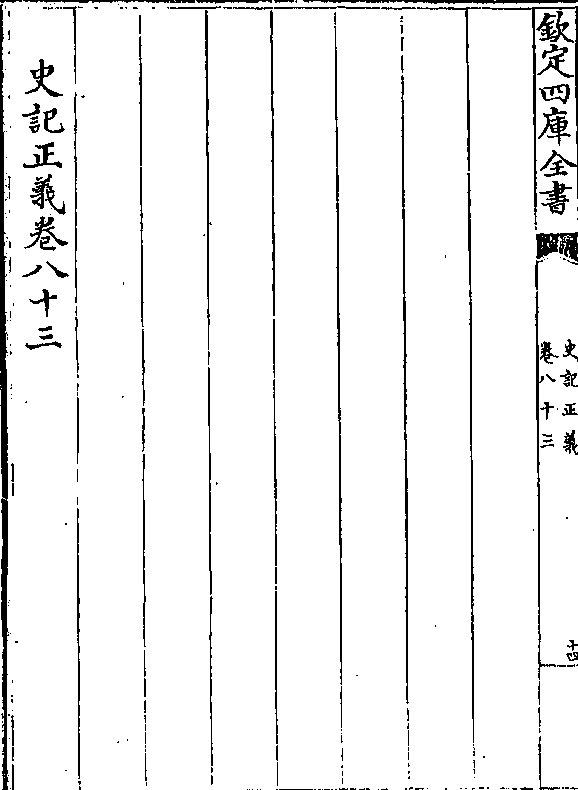 欽定四庫全書
史記正義
卷八十三
十四
史記正義卷八十三